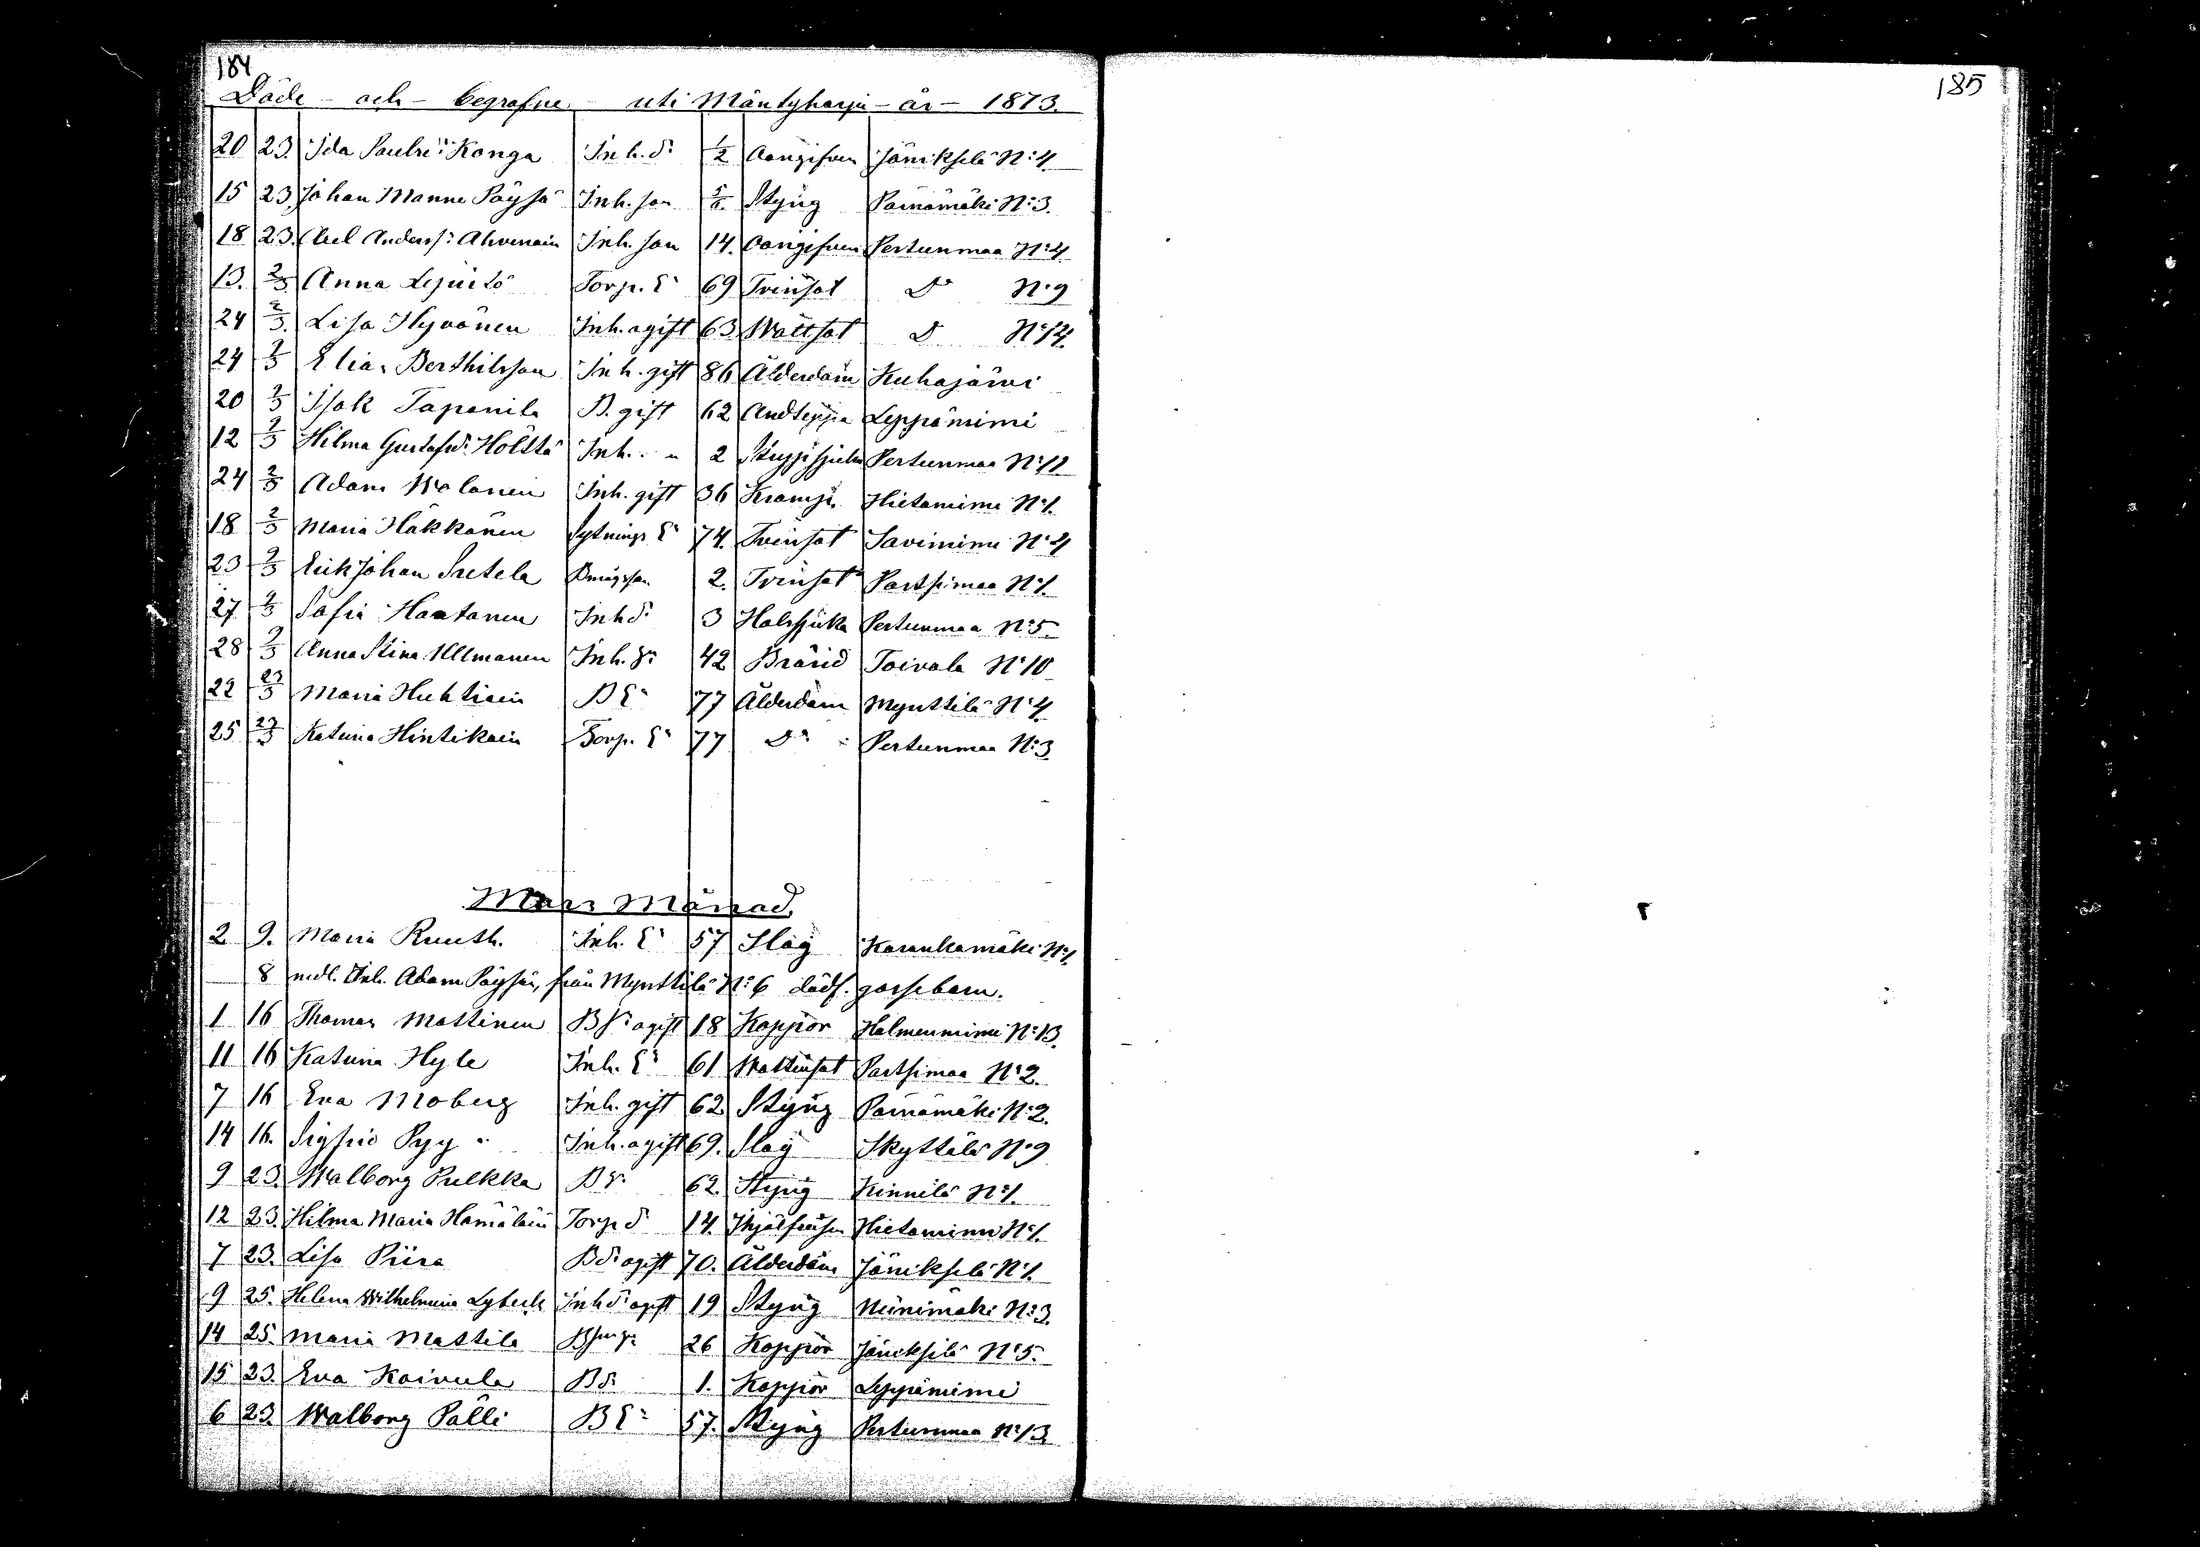 184
185
Döde - och - begrafne - uti Mäntyharju - år - 1873.
20 23. Ida Paulsd: Konga Inh. d: 1/2 Oangifven Jänikselä N:4.
15 23. Johan Manne Pöysä Inh. son 5/6. Styng Pärnämäki N:3.
18 23. Abel Anderss: Ahvenain Inh. son 14. Oangifven Pertunmaa N:4
13. 2/3 Anna Torp. E: 69 Tvinsot D:o N:9
24 2/3. Lisa Hyvönen Inh. ogift 63 Wattsot D N:12.
24 2/3 Elias Berthilsson Inh. gift 86 Ålderdom Kuhajärvi
20 2/3 Isak Tapanila B. gift 62 Andtäppa Leppäniemi
12 2/3 Hilma Gustafsd: Hölttä Inh. 2 Pertunmaa N:12
24 2/3 Adam Wolanen Inh. gift 36 Kramp. Hietaniemi N:1.
18 2/3 Maria Häkkänen Sytnings E: 74. Tvinsot Saviniemi N:4
23 2/3 Erik Johan Sutela 2. Tvinsot Partsimaa N:1.
27 2/3 Sofia Haatanen Inh d: 3 Halssjuka Pertunmaa N:5.
28 2/3 Anna Stina Ullmanen Inh. 42 Brånd Toivola N:10
22 23/3 Maria Huhtiain B E: 77 Ålderdom Mynttilä N:4.
25 23/3 Katrina Hintikain Torp. E: 77 D:o Pertunmaa N:3
Mars Månad.
2 9. Maria Ruuth. Inh. E: 57 Slag Karankamäki N:1.
8 medl. Inh. Adam Pöysän, från Mynttilä N:6 dödf. gossebarn.
1 16 Thomas Mattinen B S: ogift 18 Koppor Halmenniemi N:13.
11 16 Katrina Hyle Inh. E: 61 Wattusot Partsimaa N:2.
7 16 Eva Moberg Inh. gift 62 Styng Pärnämäki N:2.
14 16. Sigfrid Pyy Inh. ogift 69. Slag Skyttälä N:9
9 23. Walborg Pulkka B 62. Styng Kinnilä N:1.
12 23. Hilma Maria Hämäläin Torp d: 14. Ihjälfrusen Hietaniemi N:1.
7 23. Lisa Piira B d: ogift 70. Ålderdom Jäniksela N:1.
9 25. Helena Wilhelmina Lybeck Inh d: ogift 19 Styng Niinimäki N:3.
14 25. Maria Mattila 26 Koppor Jäniksilä N:5.
15 23. Eva Koivula B d: 1. Koppor Leppäniemi
6 23. Walborg Pälli B E: 57. Styng Pertunmaa N:13.